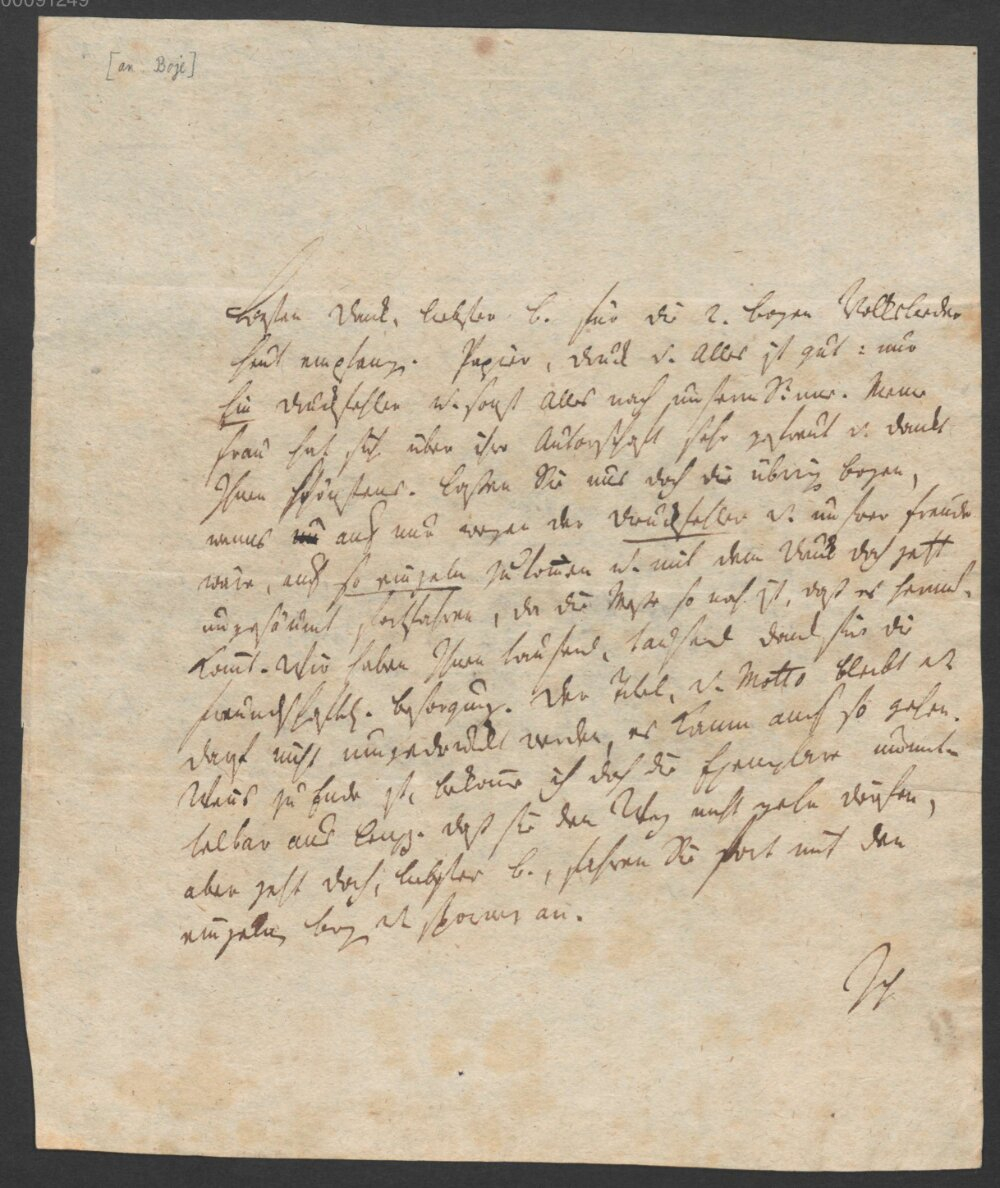 00091249
[an Boje]
Besten Dank, liebster B. für die 2. bogen Volkslieder
heut empfang. Papier, Druck u. Alles ist gut: nur
Ein Druckfehler u. sonst Alles nach unserm Sinne. Meine
Frau hat sich über ihre Autorschaft sehr gefreut u. dankt
Ihnen schönstens. Laßen Sie uns doch die übrig bogen,
wenns auch nur wegen der Druckfehler u. unsrer Freude
wäre, auch so einzeln zukommen u. mit dem Druck doch jetzt
ungesäumt fortfahren, da die Meße so nah ist, daß es herauß-
kommt. Wir haben Ihnen tausend, tausend Dank für die
freundschaftl. besorgung. Der Titel, u. Motto bleibt u.
darf nicht umgedruckt werden, es kann auch so gehen.
Wenns zu Ende ist, bekomme ich doch die Exemplare unmit-
telbar aus Leipz. daß sie den Weg nicht gehn dürfen,
aber jetzt doch, liebster B., fahren Sie fort mit den
einzeln bog. u. spornen an.